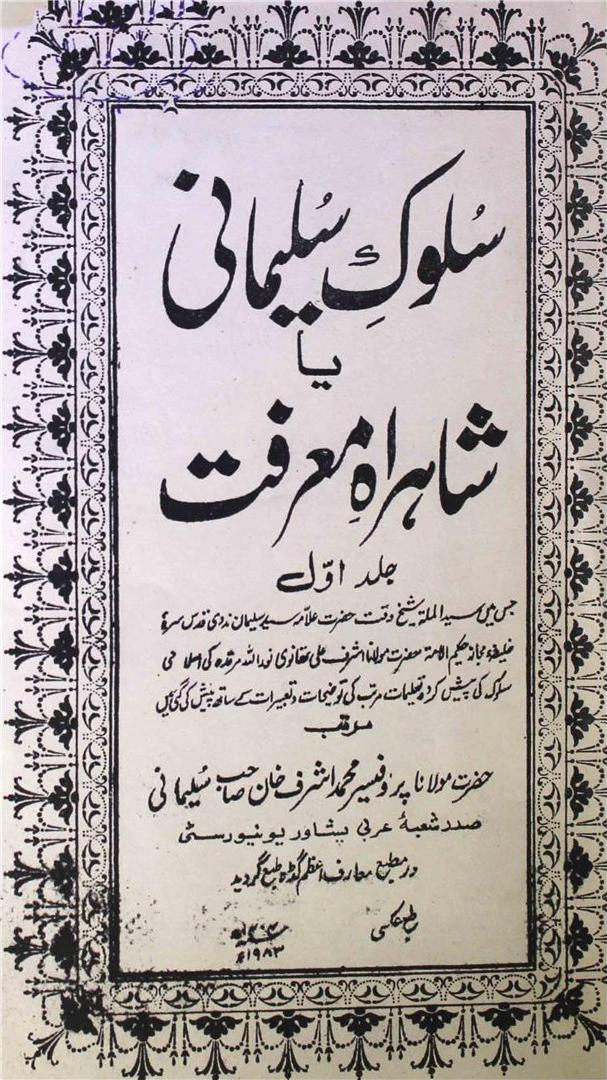 سُلوکِ سُلیمانی
یا
شاہراہِ معرفت
جلد اوّل
جس میں سید الملۃ شیخ وقت حضرت علامہ سید سلیمان ندوی قدس سرہٗ
خلیفہ مجاز حکیم الامۃ حضرت مولانا اشرف علی تھانوی نور اللہ مرقدہ کی اسلامی
سلوک کی پیش کردہ تعلیمات مرتب کی توضیحات و تعبیرات کے ساتھ پیش کی گئی ہیں
مرتب
حضرت مولانا پروفیسر محمد اشرف خان صاحب سُلیمانی
صدر شعبۂ عربی پشاور یونیورسٹی
در مطبع معارف اعظم گڈہ طبع گردید
طبع عکسی
۱۴۰۴ھ
۱۹۸۳ء